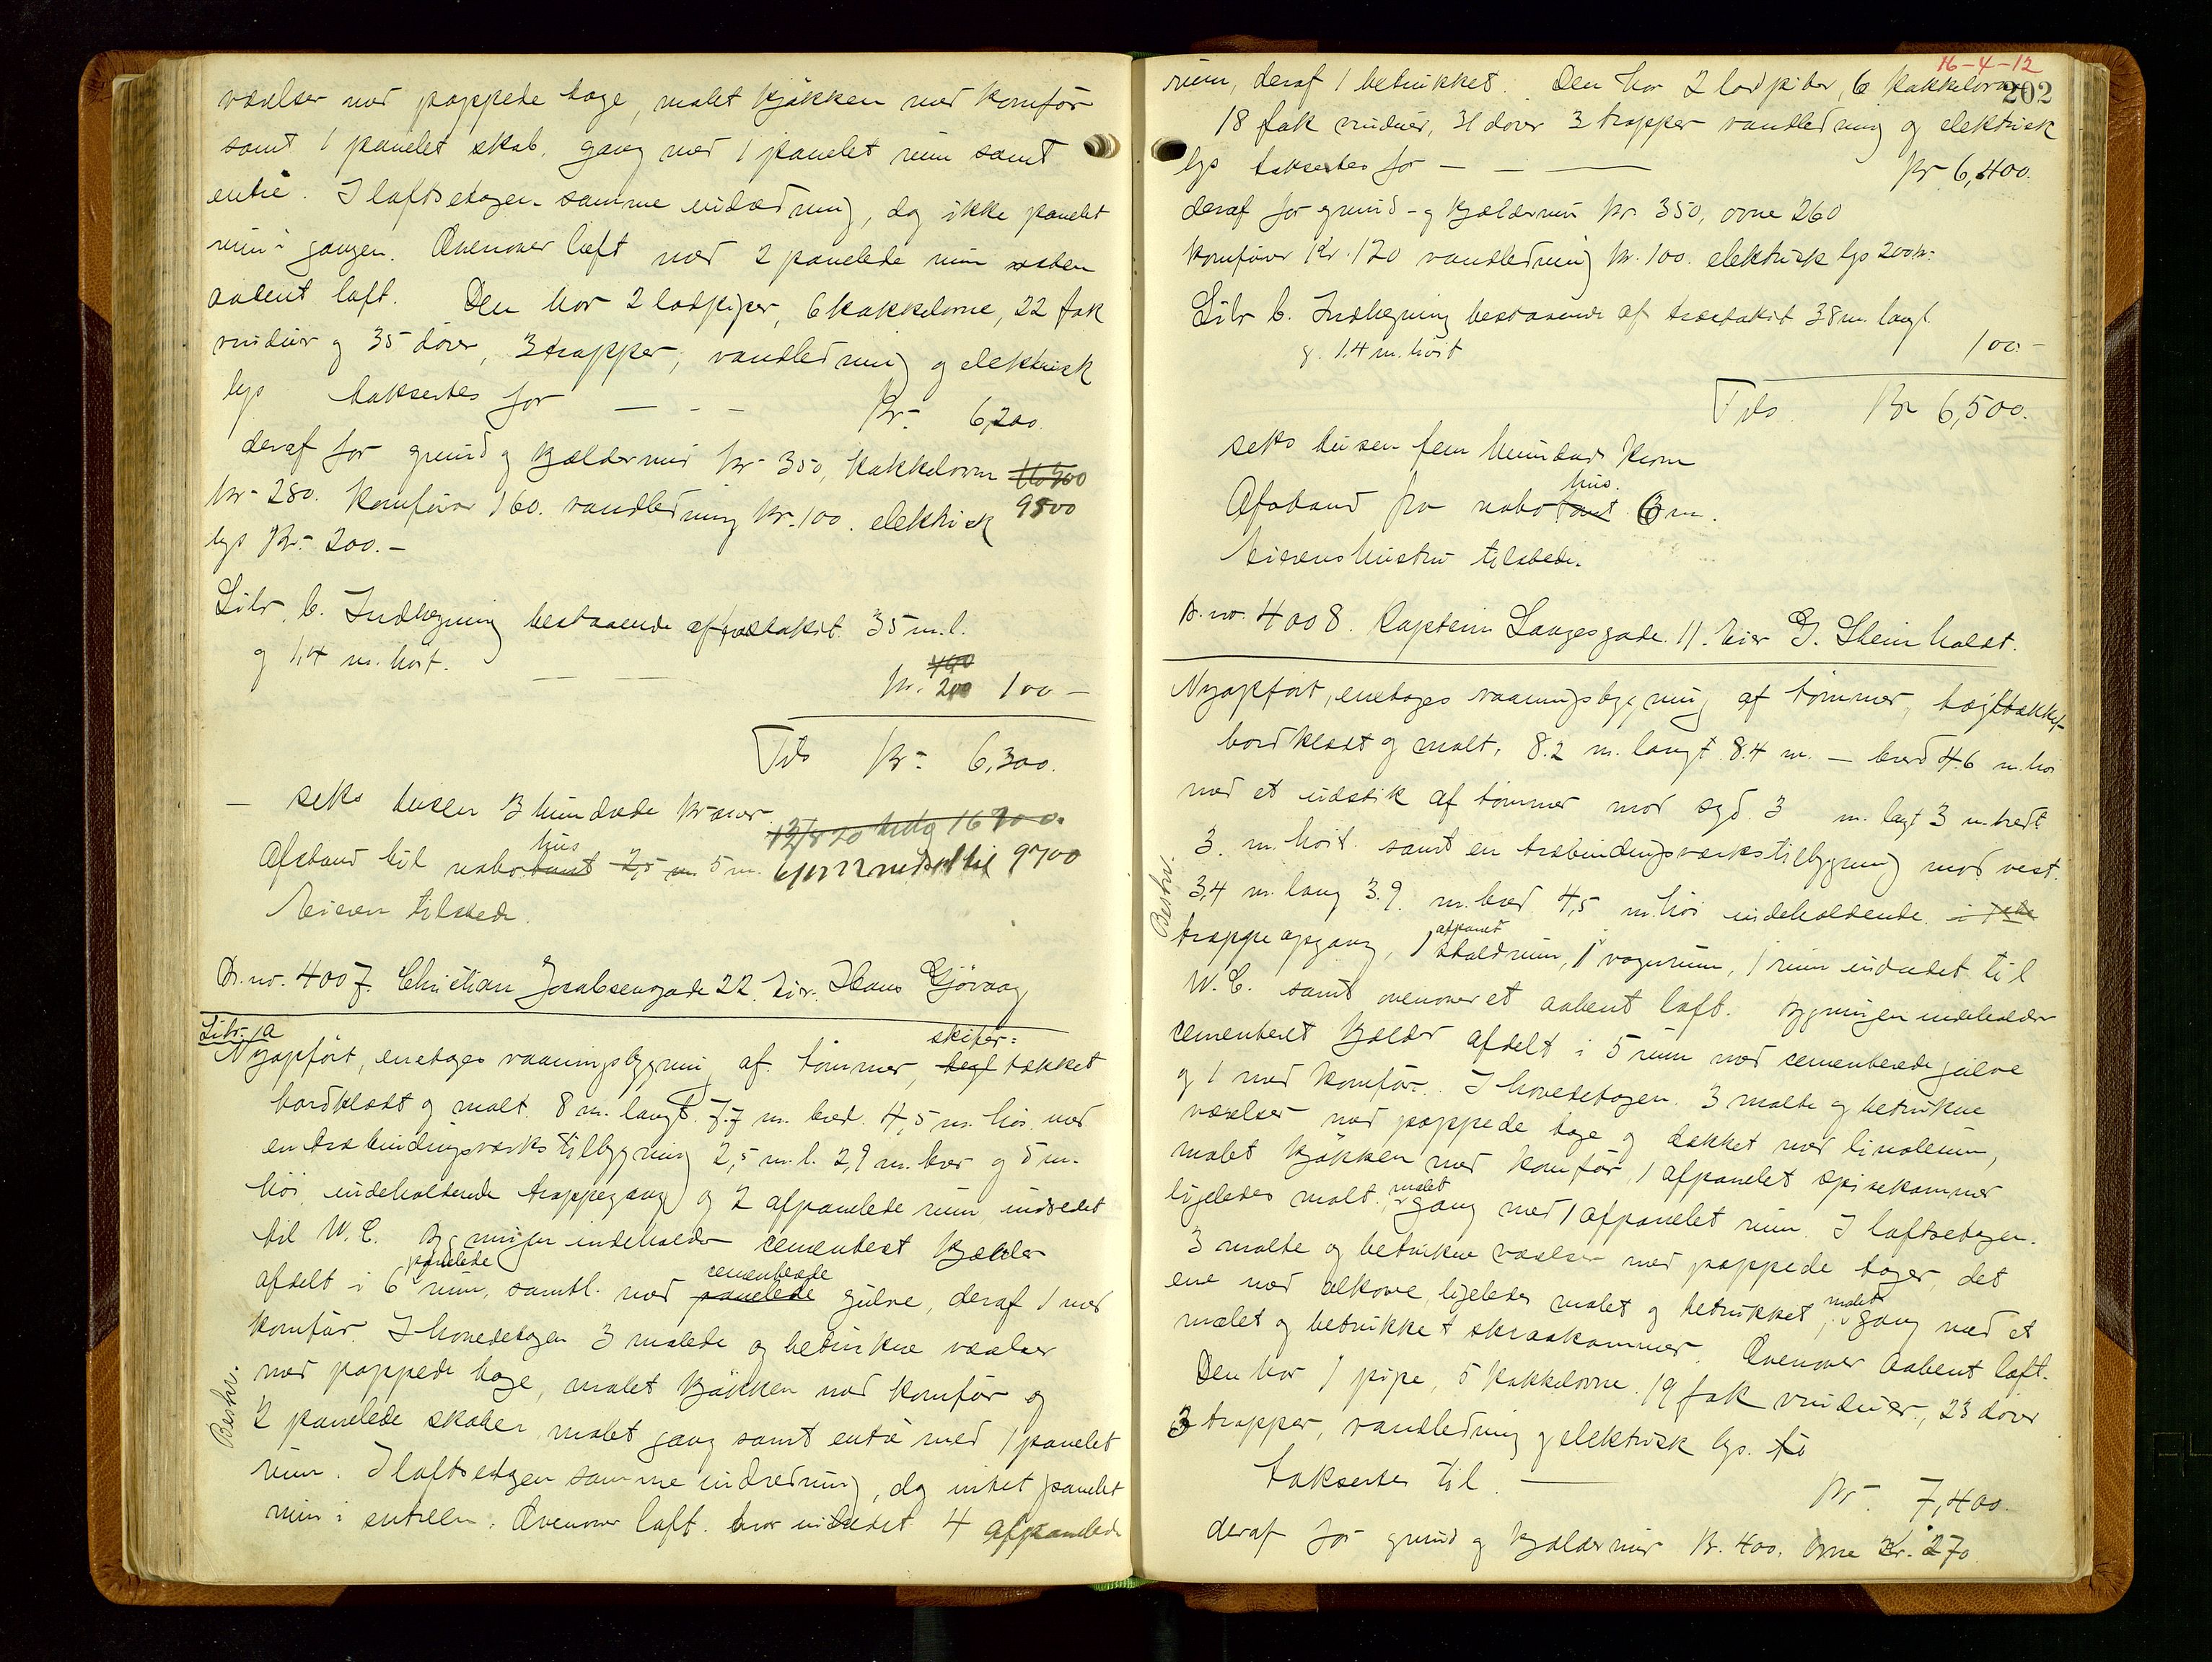 værelser med pappede tage, malet kjøkken med komfør
samt 1 panelet skab, gang med 1 panelet rum samt
entre. I loftsetagen samme indredning, dog ikke panelet
rum i gangen. Ovenover loft med 2 panelede rum
aabent loft. Den har 2 lodpiper, 6 kakkelovne, 22 fak
vinduer og 35 døre, 3 trapper, vandledning og elektrisk
lys taksertes for — - - Kr- 6,200.
deraf for grund og kjældermur kr- 350, kakkelovne
kr- 280. komfører 160. vandledning kr. 100. elektrisk 9500
lys Kr- 200.-
Litr. b. Indhegning bestaaende af træstakit 35 m. l.
og 1,4 m. høit. — — kr. 200 100 -
Tils Kr- 6,300.
- seks tusen 3 hundrede kroner.
12/8 20 16900.
Afstand til nabohus 2,5 m 5 m. 6/12 22 nedsat til 9700
Eieren tilstede.
Br. no. 4007. Christian Jacobsensgade 22. Eier. Hans Gjøvaag
Litr. a
Nyopført, enetages vaaningsbygning af tømmer, tegl skifer= tækket
bordklædt og malt. 8 m. langt 7.7 m. bred. 4,5 m. høi med
en træbindingsværks tilbygning 2,5 m. l. 2,9 m. bred og 5 m.
høi, indeholdende trappegang og 2 afpanelede rum indredet
til W. C. Bygningen indeholder cementert kjælder
afdelt i 6 panelede rum, samtl. med panelede cementerede gulve, deraf 1 med
komfør. I hovedetagen 3 malede og betrukne værelser
Beskr.
med pappede tage, malet kjøkken med komfør og
2 panelede skaber, malet gang samt entre med 1 panelet
rum. I loftsetagen samme indredning, dog intet panelet
rum i entreen. Ovenover loft hvor indredet 4 afpanelede
16-4-12
202
rum, deraf 1 betrukket. Den har 2 lodpiber, 6 kakkelovne
18 fak vinduer, 31 dører 3 trapper vandledning og elektrisk
lys taksertes for — — — Kr 6,400.
deraf for grund- og kjældermur Kr. 350, ovne 260
komfører Kr. 120 vandledning kr. 100. elektrisk lys 200 kr.
Litr b. Indhegning bestaaende af træstakit 38 m. langt
og 1.4 m. høit 100.-
Tils. Kr 6,500.
seks tusen fem hundrede Kroner
Afstand fra nabotomt hus. 6 m.
Eierens hustru tilstede.
Br. no. 4008. Captein Langesgade. 11. Eier G. Steinholdt.
Nyopført, enetages vaaningsbygning af tømmer, tegltækket
bordklædt og malt, 8.2 m. langt 8.4 m. — bred 4.6 m. høi
med et udstik af tømmer mod syd 3 m. lagt 3 m. bredt
3. m. høit. samt en træbindingsværkstilbygning mod vest.
Beskr.
3,4 m. lang 3.9. m. bred 4,5 m. høi indeholdende i 1ste
trappeopgang, 1 afpanet staldrum, 1 vognrum, 1 rum indredet til
W. C. samt ovenover et aabent loft. Bygningen indeholder
cementeret kjælder afdelt i 5 rum med cementerede gulve
og 1 med komfør. I hovedetagen 3 malte og betrukne
værelser med pappede tage og dækket med linoleum,
malet kjøkken med komfør, 1 afpanelet spisekammer
ligeledes malt, malet gang med 1 afpanelet rum. I loftsetagen
3 malte og betrukne værelser med pappede tager, det
ene med alkove, ligeledes malet og betrukket, malet gang med et
malet og betrukket skraakammer. Ovenover aabent loft.
Den har 1 pipe, 5 kakkelovne. 19 fak vinduer, 23 dører
3 trapper, vandledning og elektrisk lys.
taksertes til. — Kr- 7,400.
deraf for grund og kjældermur Kr. 400. Ovne Kr. 270.